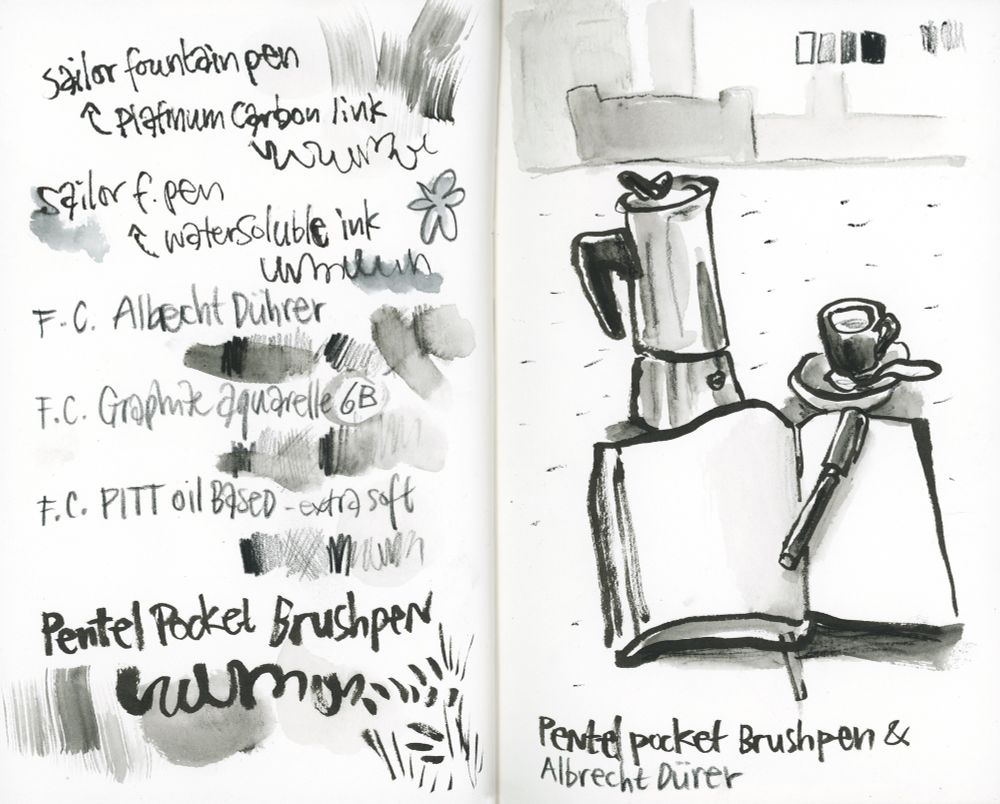 sailor fountain pen
↖ Platinum Carbon Iink
sailor f. pen
↖ watersoluble ink
F.C. Albrecht Dührer
F.C. Graphite aquarelle 6B
F.C. PITT oil Based - extra soft
Pentel Pocket Brushpen
Pentel pocket Brushpen &
Albrecht Dürer